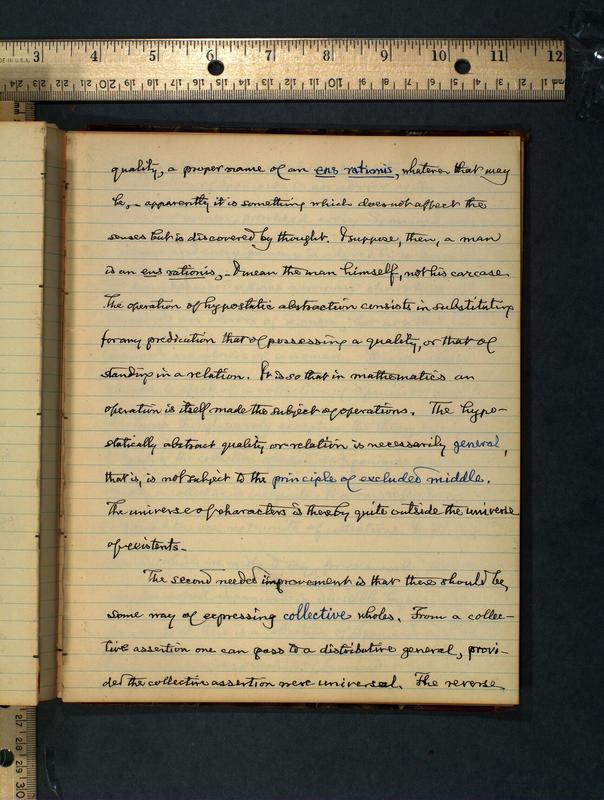 3 4 5 6 7 8 9 10 11 12
quality, a proper name of an ens rationis, whatever that may
be,— apparently it is something which does not affect the
senses but is discovered by thought. I suppose, then, a man
is an ens rationis,— I mean the man himself, not his carcase.
The operation of hypostatic abstraction consists in substituting
for any predication that of possessing a quality, or that of
standing in a relation. It is so that in mathematics an
operation is itself made the subject of operations. The hypo-
statically abstract quality or relation is necessarily general,
that is, is not subject to the principle of excluded middle.
The universe of characters is thereby quite outside the universe
of existents.
The second needed improvement is that there should be
some way of expressing collective wholes. From a collec-
tive assertion one can pass to a distributive general, provi-
ded the collective assertion were universal. The reverse